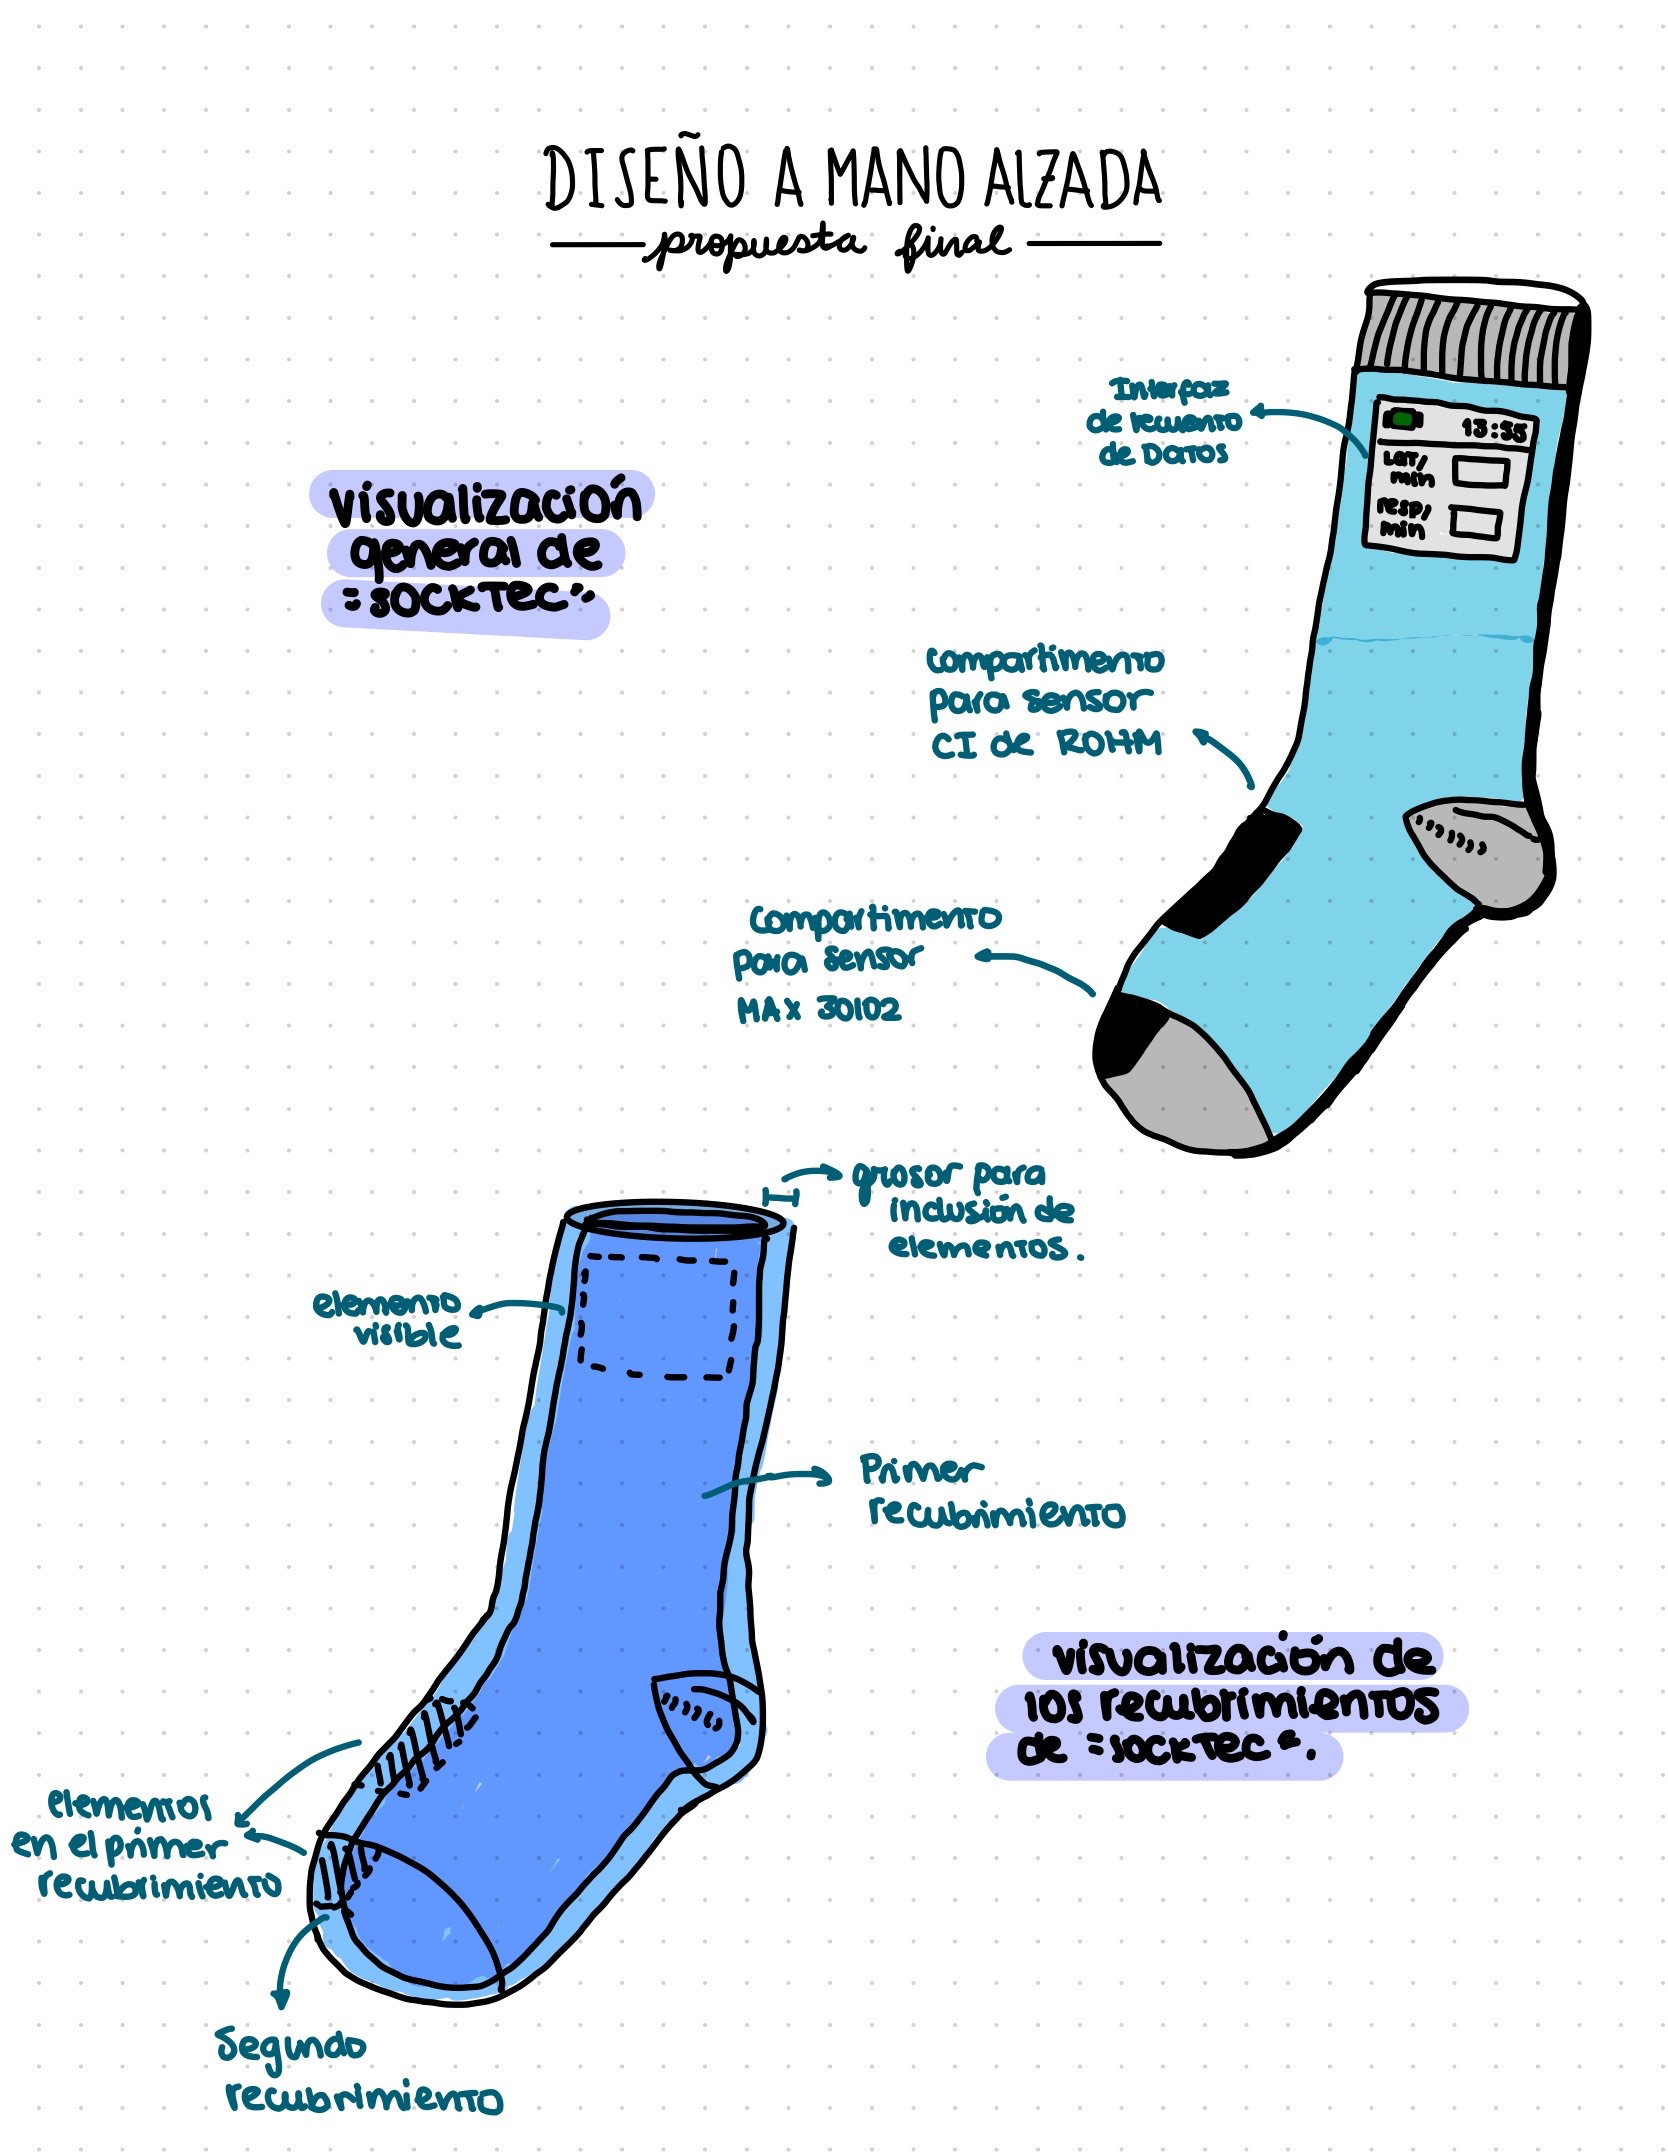 DISEÑO A MANO ALZADA
propuesta final
Interfaz
de recuento
de Datos
13:55
Lat/
min
resp/
min
visualización
general de
"SOCKTEC"
Compartimento
para sensor
CI de ROHM
Compartimento
para sensor
MAX 30102
grosor para
inclusión de
elementos.
elemento
visible
Primer
recubrimiento
visualización de
los recubrimientos
de "SOCKTEC".
elementos
en el primer
recubrimiento
Segundo
recubrimiento